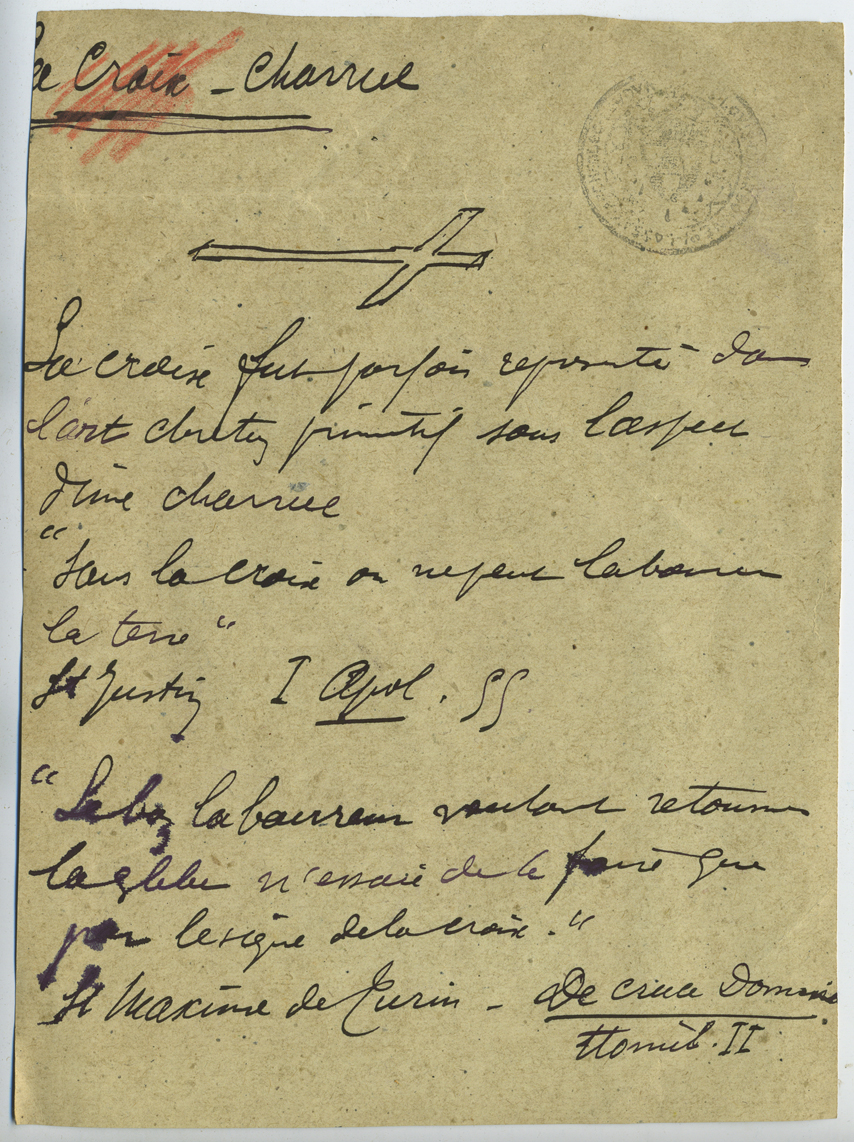 La Croix - Charrue
La croix fut parfois representé dans
l'art chretien primitif sous l'aspect
d'une charrue
"Sans la croix on ne peut labourer
la terre"
St Justin I Apol. 55
"Le bon laboureur voulant retourner
la glebe n'essaie de le faire que
par le signe de la croix."
St Maxime de Turin - De cruce Domini.
Homil. II